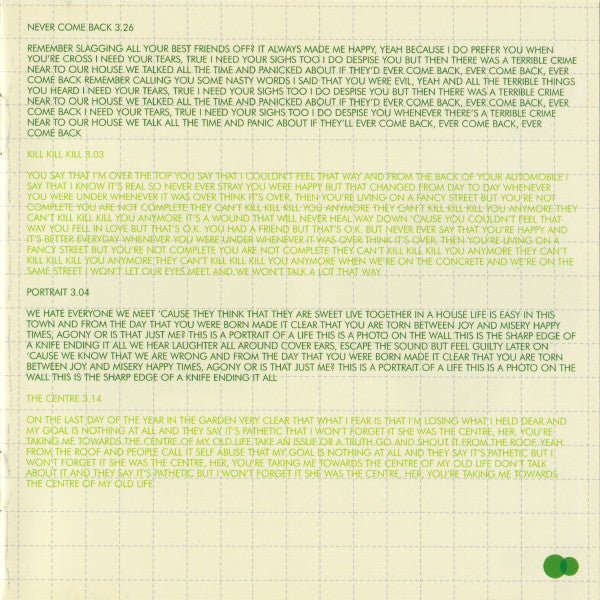 NEVER COME BACK 3.26
REMEMBER SLAGGING ALL YOUR BEST FRIENDS OFF? IT ALWAYS MADE ME HAPPY, YEAH BECAUSE I DO PREFER YOU WHEN
YOU'RE CROSS I NEED YOUR TEARS, TRUE I NEED YOUR SIGHS TOO I DO DESPISE YOU BUT THEN THERE WAS A TERRIBLE CRIME
NEAR TO OUR HOUSE WE TALKED ALL THE TIME AND PANICKED ABOUT IF THEY'D EVER COME BACK, EVER COME BACK, EVER
COME BACK REMEMBER CALLING YOU SOME NASTY WORDS I SAID THAT YOU WERE EVIL, YEAH AND ALL THE TERRIBLE THINGS
YOU HEARD I NEED YOUR TEARS, TRUE I NEED YOUR SIGHS TOO I DO DESPISE YOU BUT THEN THERE WAS A TERRIBLE CRIME
NEAR TO OUR HOUSE WE TALKED ALL THE TIME AND PANICKED ABOUT IF THEY'D EVER COME BACK, EVER COME BACK, EVER
COME BACK I NEED YOUR TEARS, TRUE I NEED YOUR SIGHS TOO I DO DESPISE YOU WHENEVER THERE'S A TERRIBLE CRIME
NEAR TO OUR HOUSE WE TALK ALL THE TIME AND PANIC ABOUT IF THEY'LL EVER COME BACK, EVER COME BACK, EVER
COME BACK
KILL KILL KILL 3.03
YOU SAY THAT I'M OVER THE TOP YOU SAY THAT I COULDN'T FEEL THAT WAY AND FROM THE BACK OF YOUR AUTOMOBILE I
SAY THAT I KNOW IT'S REAL SO NEVER EVER STRAY YOU WERE HAPPY BUT THAT CHANGED FROM DAY TO DAY WHENEVER
YOU WERE UNDER WHENEVER IT WAS OVER THINK IT'S OVER, THEN YOU'RE LIVING ON A FANCY STREET BUT YOU'RE NOT
COMPLETE YOU ARE NOT COMPLETE THEY CAN'T KILL KILL KILL YOU ANYMORE THEY CAN'T KILL KILL KILL YOU ANYMORE THEY
CAN'T KILL KILL KILL YOU ANYMORE IT'S A WOUND THAT WILL NEVER HEAL WAY DOWN 'CAUSE YOU COULDN'T FEEL THAT
WAY YOU FELL IN LOVE BUT THAT'S O.K. YOU HAD A FRIEND BUT THAT'S O.K. BUT NEVER EVER SAY THAT YOU'RE HAPPY AND
IT'S BETTER EVERYDAY WHENEVER YOU WERE UNDER WHENEVER IT WAS OVER THINK IT'S OVER, THEN YOU'RE LIVING ON A
FANCY STREET BUT YOU'RE NOT COMPLETE YOU ARE NOT COMPLETE THEY CAN'T KILL KILL KILL YOU ANYMORE THEY CAN'T
KILL KILL KILL YOU ANYMORE THEY CAN'T KILL KILL KILL YOU ANYMORE WHEN WE'RE ON THE CONCRETE AND WE'RE ON THE
SAME STREET I WON'T LET OUR EYES MEET AND WE WON'T TALK A LOT THAT WAY
PORTRAIT 3.04
WE HATE EVERYONE WE MEET 'CAUSE THEY THINK THAT THEY ARE SWEET LIVE TOGETHER IN A HOUSE LIFE IS EASY IN THIS
TOWN AND FROM THE DAY THAT YOU WERE BORN MADE IT CLEAR THAT YOU ARE TORN BETWEEN JOY AND MISERY HAPPY
TIMES, AGONY OR IS THAT JUST ME? THIS IS A PORTRAIT OF A LIFE THIS IS A PHOTO ON THE WALL THIS IS THE SHARP EDGE OF
A KNIFE ENDING IT ALL WE HEAR LAUGHTER ALL AROUND COVER EARS, ESCAPE THE SOUND BUT FEEL GUILTY LATER ON
'CAUSE WE KNOW THAT WE ARE WRONG AND FROM THE DAY THAT YOU WERE BORN MADE IT CLEAR THAT YOU ARE TORN
BETWEEN JOY AND MISERY HAPPY TIMES, AGONY OR IS THAT JUST ME? THIS IS A PORTRAIT OF A LIFE THIS IS A PHOTO ON THE
WALL THIS IS THE SHARP EDGE OF A KNIFE ENDING IT ALL
THE CENTRE 3.14
ON THE LAST DAY OF THE YEAR IN THE GARDEN VERY CLEAR THAT WHAT I FEAR IS THAT I'M LOSING WHAT I HELD DEAR AND
MY GOAL IS NOTHING AT ALL AND THEY SAY IT'S PATHETIC THAT I WON'T FORGET IT SHE WAS THE CENTRE, HER, YOU'RE
TAKING ME TOWARDS THE CENTRE OF MY OLD LIFE TAKE AN ISSUE OR A TRUTH GO AND SHOUT IT FROM THE ROOF YEAH
FROM THE ROOF AND PEOPLE CALL IT SELF ABUSE THAT MY GOAL IS NOTHING AT ALL AND THEY SAY IT'S PATHETIC BUT I
WON'T FORGET IT SHE WAS THE CENTRE, HER, YOU'RE TAKING ME TOWARDS THE CENTRE OF MY OLD LIFE DON'T TALK
ABOUT IT AND THEY SAY IT'S PATHETIC BUT I WON'T FORGET IT SHE WAS THE CENTRE, HER, YOU'RE TAKING ME TOWARDS
THE CENTRE OF MY OLD LIFE